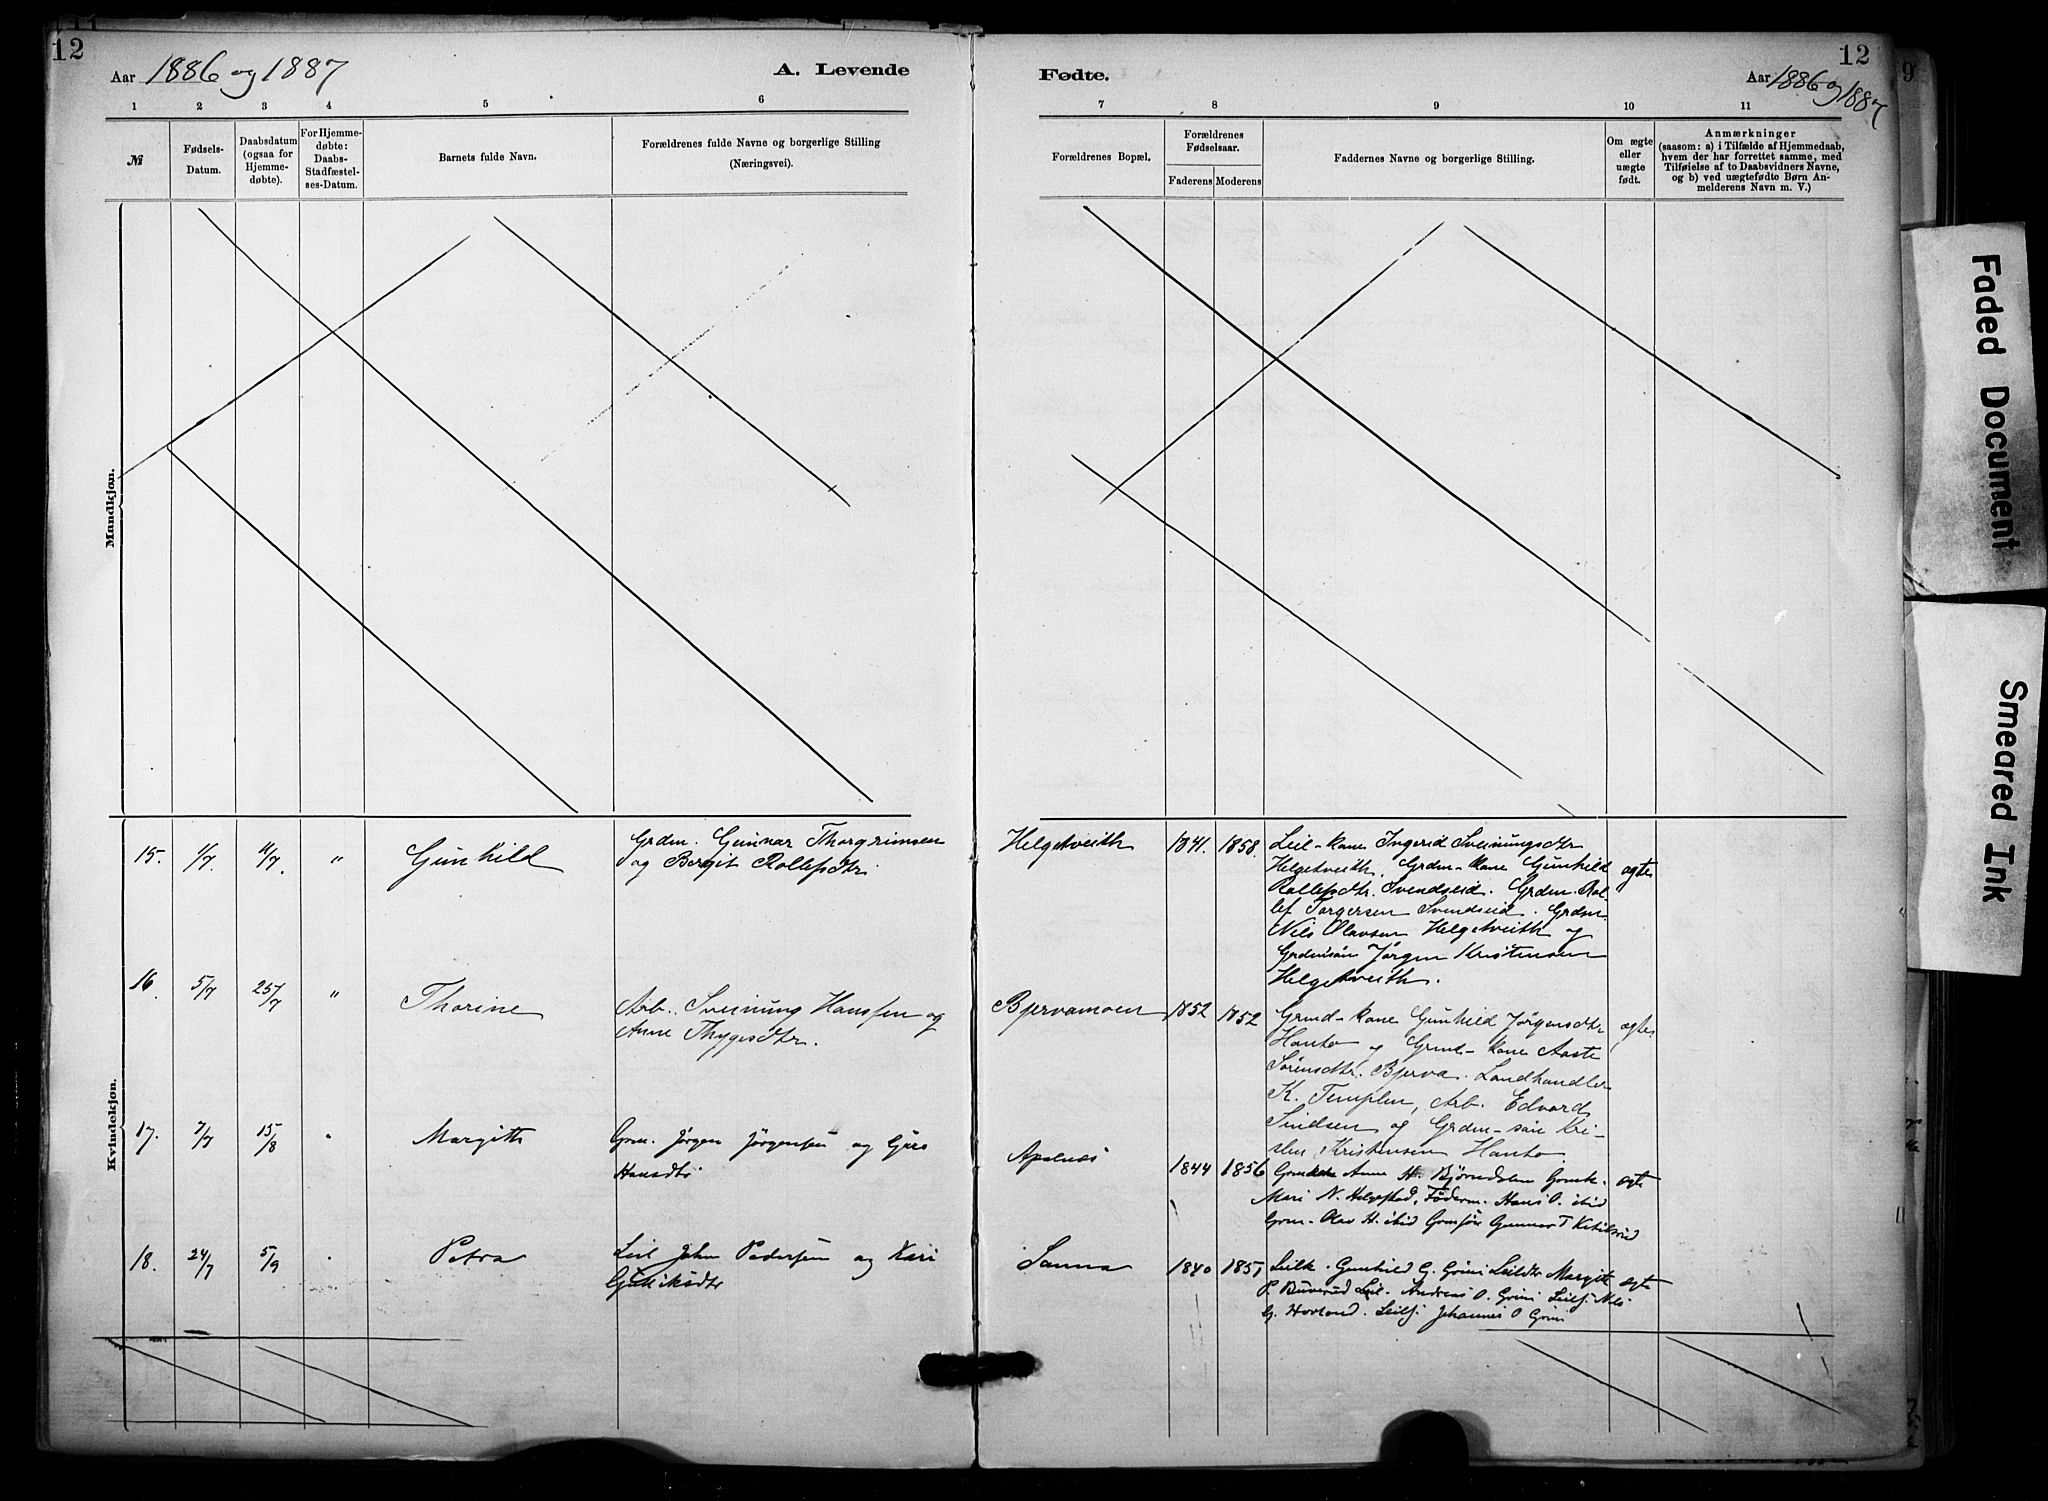 12
Aar 1886 og 1887
A. Levende
1 2 3 4 5 6
№
Fødsels-
Datum.
Daabsdatum
(ogsaa for
Hjemme-
døbte).
For Hjemme-
døbte:
Daabs-
Stadfæstel-
ses-Datum.
Barnets fulde Navn.
Forældrenes fulde Navne og borgerlige Stilling
(Næringsvei).
Mandkjøn.
Kvindekjøn.
15. 1/7. 11/7. " Gunhild
Grdm. Gunnar Thorgrimsen
og Bergit Rollefsdtr.
16. 5/7 25/7 " Thorine
Arb. Sveinung Hanssen og
Anne Thygesdtr.
17. 7/7 15/8 " Margith
Grm. Jørgen Jørgensen og Guro
Hansdtr
18. 24/7 5/9 " Petra
Leil John Pedersen og Kari
Gulliksdtr
Fødte.
12
Aar 1886 og 1887
7 8 9 10 11
Forældrenes Bopæl.
Forældrenes
Fødselsaar.
Faderens Moderens
Faddernes Navne og borgerlige Stilling.
Om ægte
eller
uægte
født.
Anmærkninger
(saasom: a) i Tilfælde af Hjemmedaab,
hvem der har forrettet samme, med
Tilføielse af to Daabsvidners Navne,
og b) ved uægtefødte Børn An-
melderens Navn m. V.)
Helgetveith 1841. 1858. Leil-kone Ingerid Sveinungsdtr
Helgetveith, Grdm-kone Gunhild ægte
Rollefsdtr. Svendseid. Grdm. Rol-
lef Torgersen Svendseid. Grdm.
Nils Olavsen Helgetveith og
Grdmsøn Jørgen Kristensen
Helgetveith.
Bjervamoen 1852 1852 Grmd-kone Gunhild Jørgensdtr ægte
Hanto og Grmd-kone Aaste
Sørensdtr. Bjerva. Landhandler
K. Templen, Arb. Edvard
Sindsen og Grdm-søn Kri-
sten Kristensen Hanto.
Apalnæs 1844 1856 Anne H. Bjørndalen ægte
Mari N. Hans O. ibid
Grm. Olav H. ibid Gunnar T
Sanna 1840 1851 Leilk. Gunhild G. Grini Leildtr Margit ægte
P. Buverud Leil. Andreas O. Grini Leilsj. Nils
G. Hovland. Leilsj. Johannes O Grini
9
Faded Document
Smeared Ink